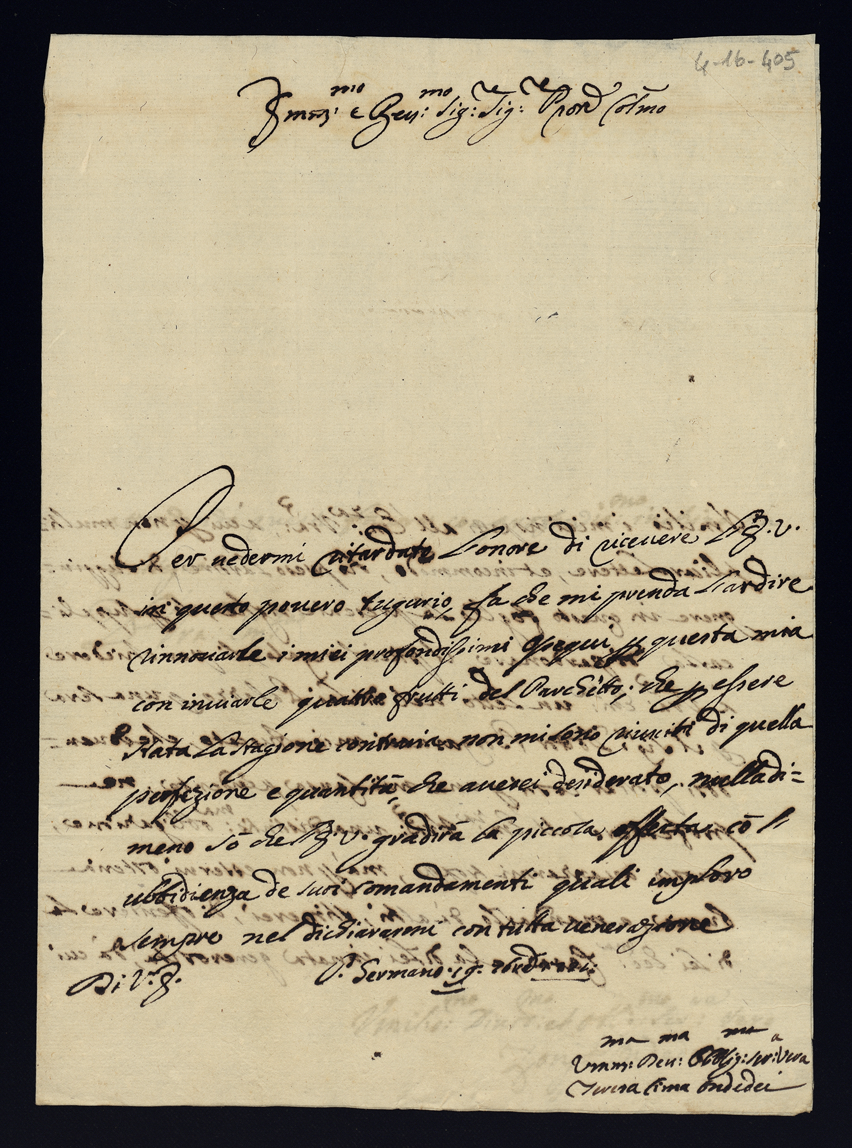 4-16-405
e Sig: Sig: Pron Colmo
Per vedermi ritardato L'onore di riceuere
in questo pouero tugurio, fa che mi prenda L'ardire
rinnouarle i miei profondissimi ossequi questa mia
con inviarle quattro frutti del Parchetto, che p essere
stata La stagione contraria non mi sono riusciti di quella
perfezione e quantità, che auerei desiderato, nulladi=
meno sò che gradirà La piccola offerta, cò l'
ubbidienza de suoi comandamenti quali imploro
sempre nel dichiararmi con tutta uenerazione
Di V.
P. Germano 19
ma ma ma a
Umm: Deu: Obblig: Ser: Vera
Teresa Ondedei